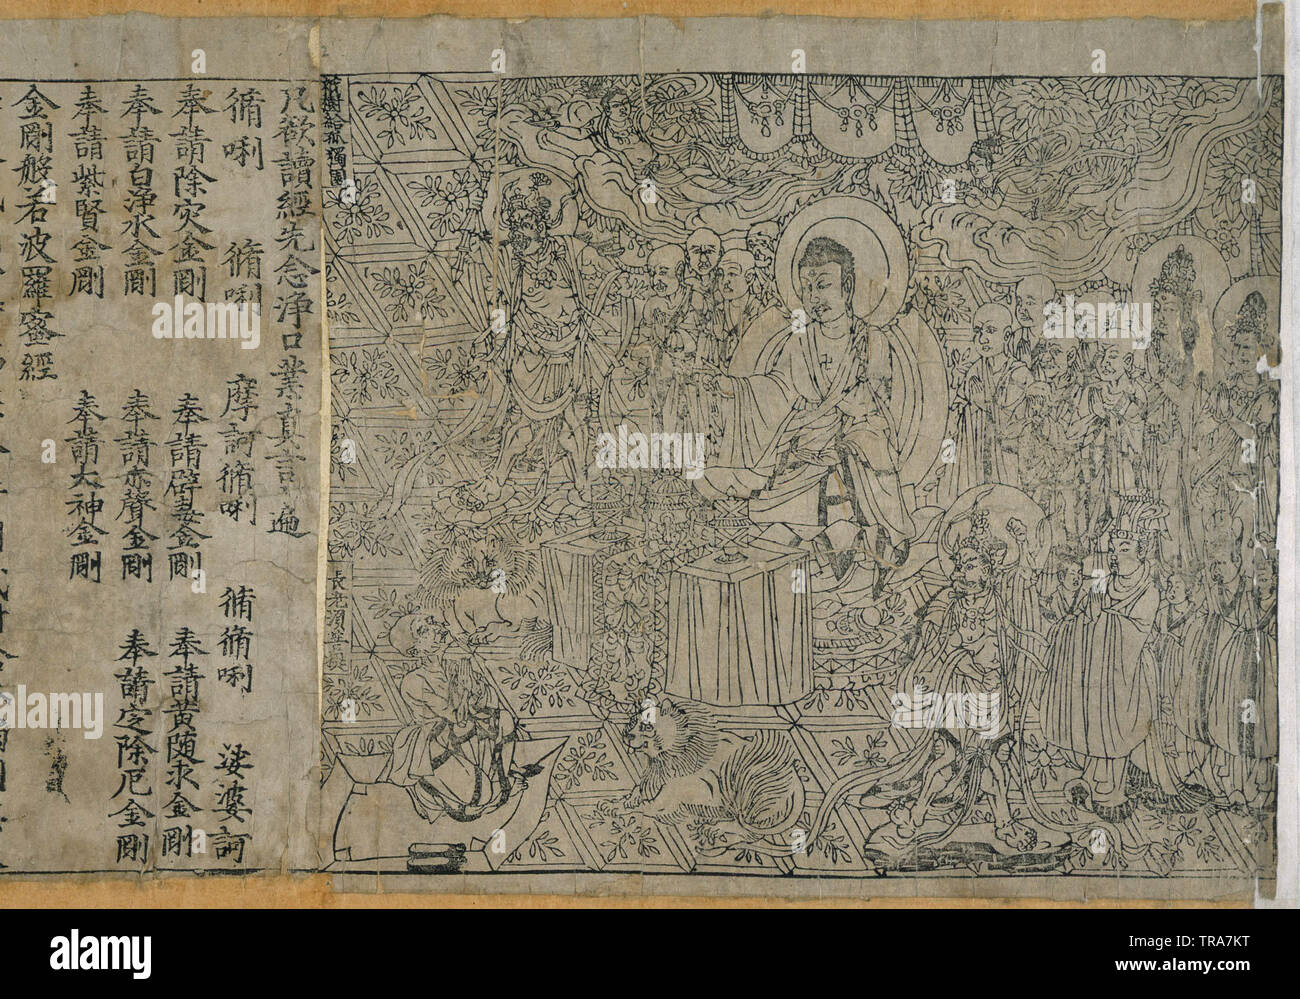 祇樹給孤獨園
長老須菩提
凡欲讀經先念淨口業真言一遍
脩唎 脩唎 摩訶脩唎 脩脩唎 娑婆訶
奉請除災金剛 奉請辟毒金剛 奉請黃随求金剛
奉請白淨水金剛 奉請赤聲金剛 奉請定除厄金剛
奉請紫賢金剛 奉請大神金剛
金剛般若波羅蜜經
alamy
Image ID: TRA7KT
www.alamy.com